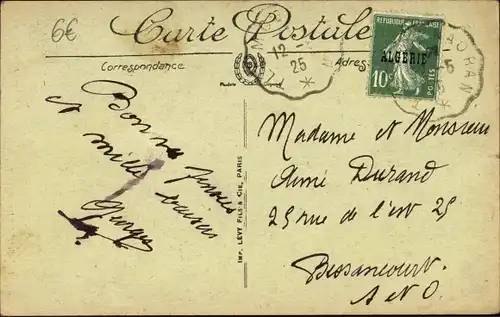 6€
Carte Postale
Correspondance
Adres
RÉPUBLIQUE FRANÇAISE
ALGÉRIE
10c
POSTES
12
25
ORAN
Bonnes pensées
et mille baisers
Georges
IMP. LÉVY FILS & CIE, PARIS
Madame et Monsieur
Aimé Durand
25 rue de l'ent 25
Bessancourt
S et O.